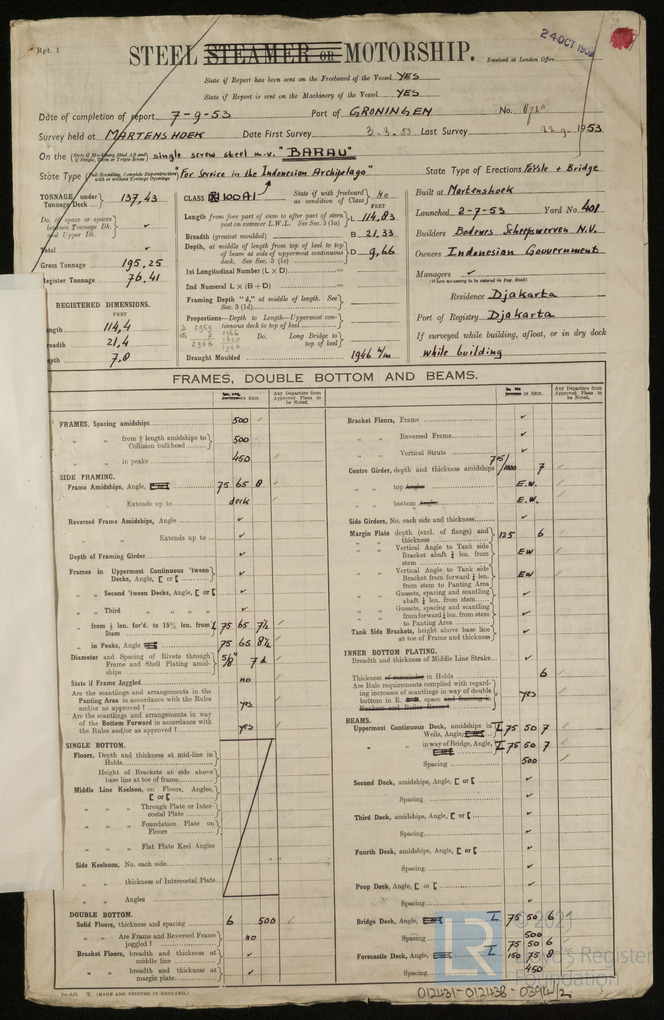 Rpt. 1
24 OCT
STEEL STEAMER OR MOTORSHIP.
Received at London Office
State if Report has been sent on the Freeboard of the Vessel YES
State if Report is sent on the Machinery of the Vessel YES
Date of completion of report 7-9-53 Port of GRONINGEN No.
Survey held at MARTENSHOEK Date First Survey 3.3.53 Last Survey 1953
On the single screw steel m.v. "BARAU"
State Type "For Service in the Indonesian Archipelago" State Type of Erections Fo'xle + Bridge
TONNAGE under Tonnage Deck 137,43
Do. of space or spaces between Tonnage Dk. and Upper Dk.
Total
Gross Tonnage 195,25
Register Tonnage 76,41
REGISTERED DIMENSIONS.
FEET
ength 114,4
readth 21,4
epth 7,8
CLASS 100A1 State if with freeboard as condition of Class No
FEET
Length from fore part of stem to after part of stern post on summer L.W.L. See Sec. 3 (1a) L 114,83
Breadth (greatest moulded) B 21,33
Depth, at middle of length from top of keel to top of beam at side of uppermost continuous deck. See Sec. 3 (1c) D 9,66
1st Longitudinal Number (L × D)
2nd Numeral L × (B + D)
Framing Depth "d," at middle of length. See Sec. 3 (1d)
Proportions—Depth to Length—Uppermost continuous deck to top of keel
Do. Long Bridge to top of keel
Draught Moulded 1946 m/m
Built at Martenshoek
Launched 2-7-53 Yard No. 401
Builders Bodewes Scheepswerven N.V.
Owners Indonesian Gouvernment
Managers
(Where necessary to be entered in Reg. Book)
Residence Djakarta
Port of Registry Djakarta
If surveyed while building, afloat, or in dry dock
while building
FRAMES, DOUBLE BOTTOM AND BEAMS.
IN SHIP.
Any Departure from Approved Plans to be Noted.
IN SHIP.
Any Departure from Approved Plans to be Noted.
FRAMES, Spacing amidships 500
" " from ⅗ length amidships to Collision bulkhead 500
" " in peaks 450
SIDE FRAMING.
Frame Amidships, Angle, 75 65 8
" " Extends up to deck
Reversed Frame Amidships, Angle
" " Extends up to
Depth of Framing Girder
Frames in Uppermost Continuous 'tween Decks, Angle, [ or [
" " Second 'tween Decks, Angle, [ or [
" " Third " " " "
" " from ⅗ len. for'd. to 15% len. from Stem 75 65 7½
" " in Peaks, Angle 75 65 8½
Diameter and Spacing of Rivets through Frame and Shell Plating amidships 5/8" 7 d
State if Frame Joggled no
Are the scantlings and arrangements in the Panting Area in accordance with the Rules and/or as approved ? yes
Are the scantlings and arrangements in way of the Bottom Forward in accordance with the Rules and/or as approved ? yes
SINGLE BOTTOM.
Floors, Depth and thickness at mid-line in Holds
Height of Brackets at side above base line at toe of frame
Middle Line Keelson, on Floors, Angles, [ or [
" " Through Plate or Intercostal Plate
" " Foundation Plate on Floors
" " Flat Plate Keel Angles
Side Keelsons, No. each side
" " thickness of Intercostal Plate
" " Angles
DOUBLE BOTTOM.
Solid Floors, thickness and spacing 6 500
" " Are Frame and Reversed Frame joggled ? no
Bracket Floors, breadth and thickness at middle line
" " breadth and thickness at margin plate
Bracket Floors, Frame
" " Reversed Frame
" " Vertical Struts
Centre Girder, depth and thickness amidships 715/1000 7
" " top Angles E.W.
" " bottom Angles E.W.
Side Girders, No. each side and thickness
Margin Plate depth (excl. of flange) and thickness 125 6
" " Vertical Angle to Tank side Bracket abaft ¼ len. from stem EW
" " Vertical Angle to Tank side Bracket from forward ¼ len. from stem to Panting Area EW
" " Gussets, spacing and scantling abaft ¼ len. from stem
" " Gussets, spacing and scantling from forward ¼ len. from stem to Panting Area
Tank Side Brackets, height above base line at toe of Frame and thickness
INNER BOTTOM PLATING.
Breadth and thickness of Middle Line Strake
Thickness of remainder in Holds 6
Are Rule requirements complied with regarding increases of scantlings in way of double bottom in E. space and framing in Bunkers and Boiler Room ? yes
BEAMS.
Uppermost Continuous Deck, amidships in Wells, Angle, I 75 50 7
" " in way of Bridge, Angle, I 75 50 7
Spacing 500
Second Deck, amidships, Angle, [ or [
Spacing
Third Deck, amidships, Angle, [ or [
Spacing
Fourth Deck, amidships, Angle, [ or [
Spacing
Poop Deck, Angle, [ or [
Spacing
Bridge Deck, Angle, I 75 50 6
Spacing 500
75 50 6
Forecastle Deck, Angle, I 150 75 8
Spacing 450
© 2021
Lloyd's Register
Foundation
LR
(MADE AND PRINTED IN ENGLAND.)
012431-012438-0394 1/2